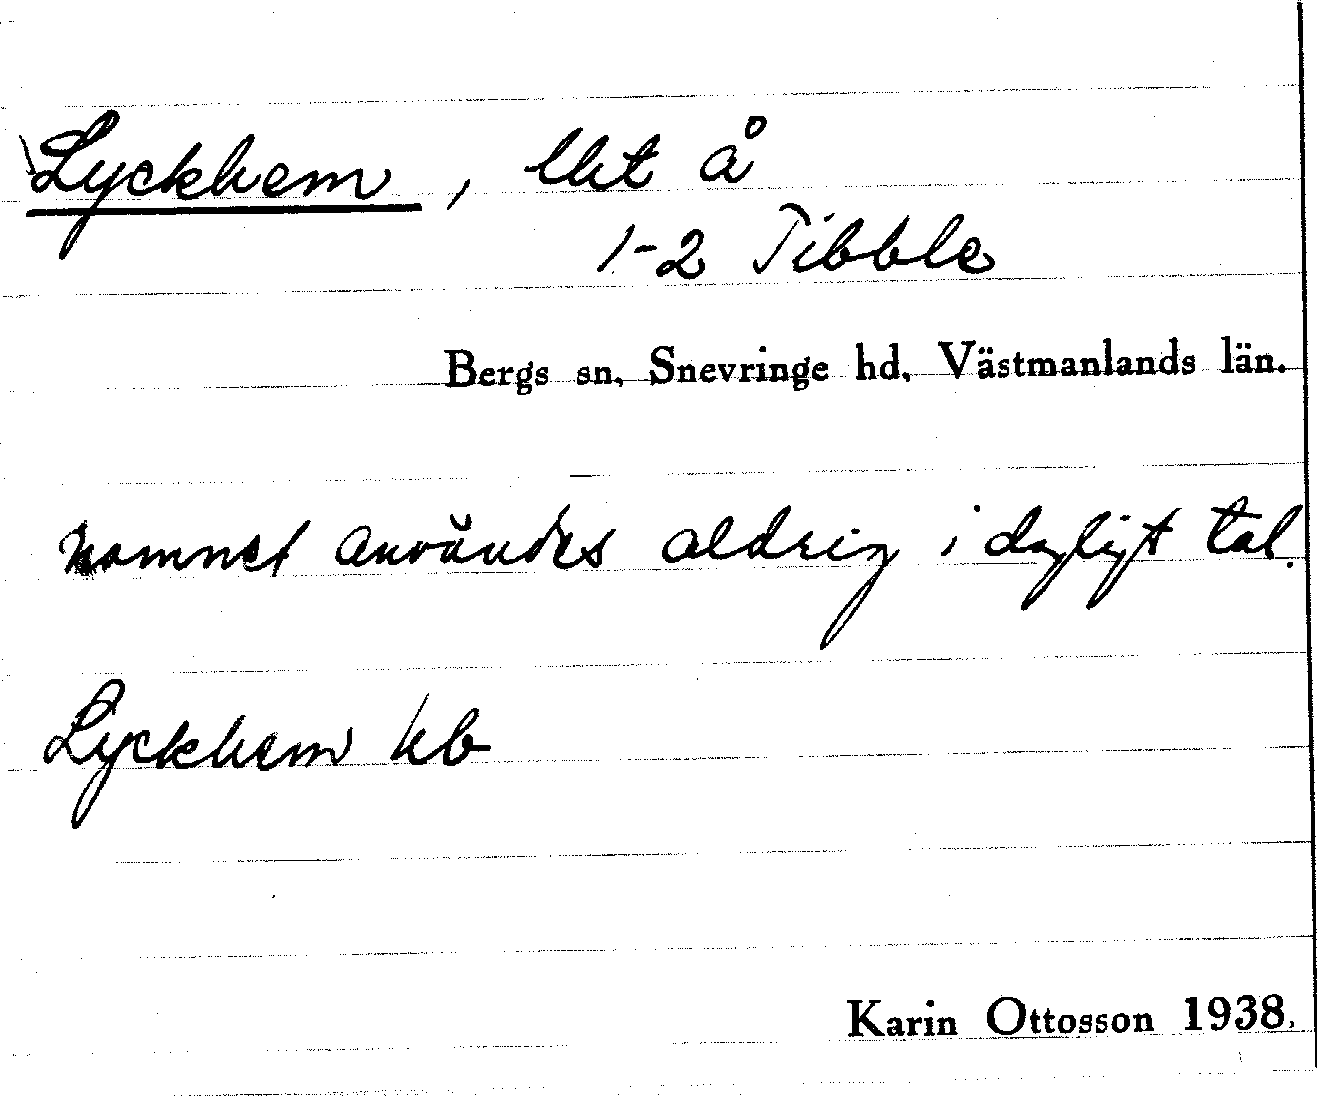 Lyckhem, lht å
1-2 Tibble
Bergs sn, Snevringe hd, Västmanlands län.
namnet användes aldrig i dagligt tal.
Lyckhem kb
Karin Ottosson 1938.